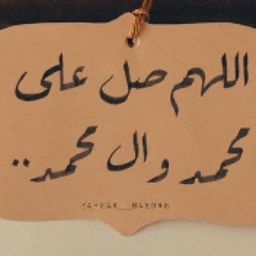 اللهم صل على
محمد وال محمد..